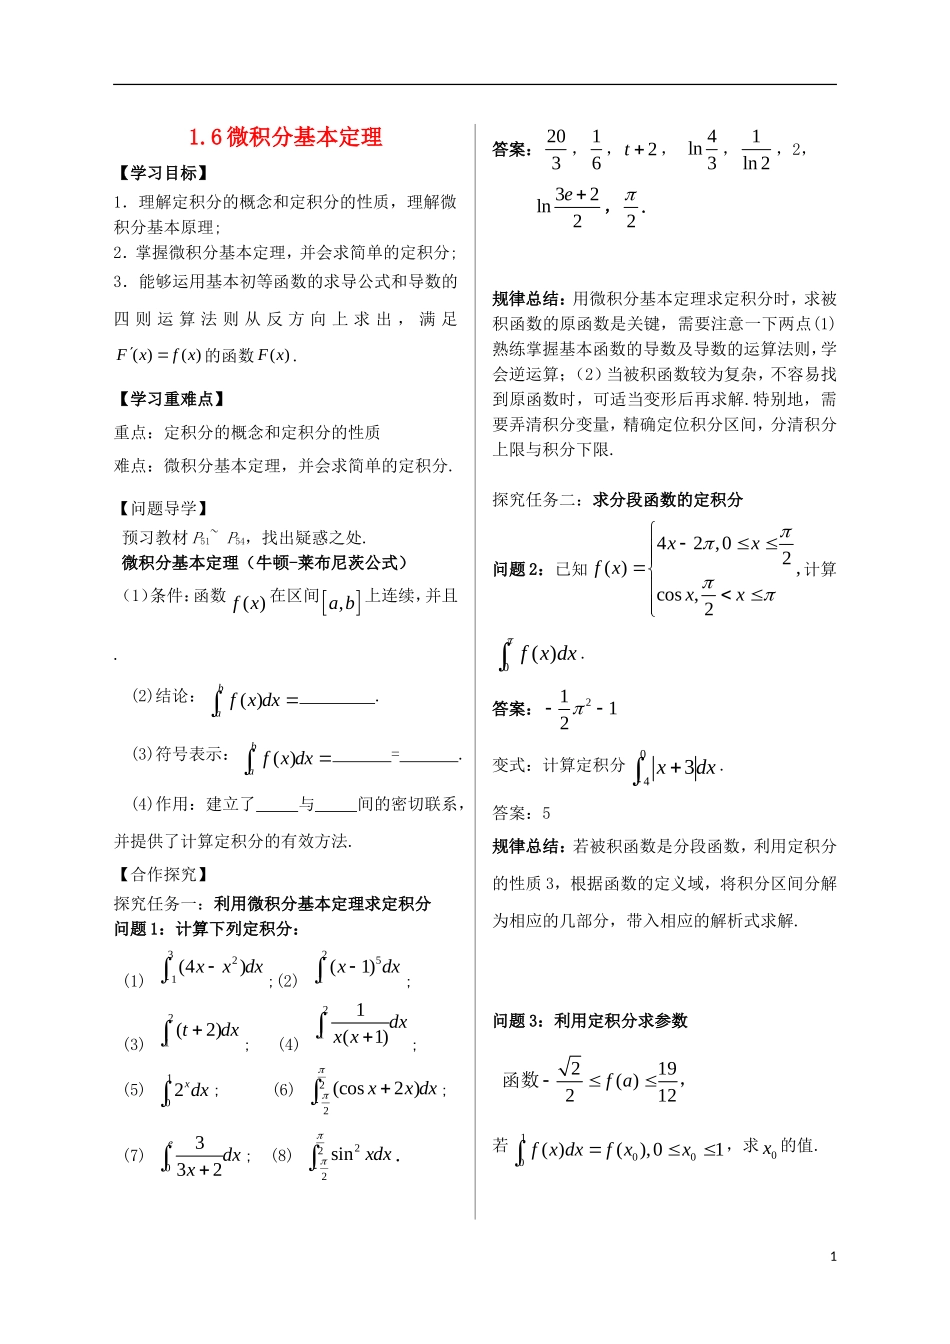 1.6 微积分基本定理
【学习目标】
1．理解定积分的概念和定积分的性质，理解微
积分基本原理;
2．掌握微积分基本定理，并会求简单的定积分;
3．能够运用基本初等函数的求导公式和导数的
四则运算法则从反方向上求出，满足
F′(x) = f(x) 的函数 F(x)．
【学习重难点】
重点：定积分的概念和定积分的性质
难点：微积分基本定理，并会求简单的定积分.
【问题导学】
预习教材 P51~ P54，找出疑惑之处.
微积分基本定理（牛顿-莱布尼茨公式）
（1)条件:函数 f(x) 在区间 [a,b] 上连续，并且
.
(2)结论： ∫_a^b f(x)dx =________.
(3)符号表示： ∫_a^b f(x)dx =______=______.
(4)作用：建立了_____与_____间的密切联系，
并提供了计算定积分的有效方法.
【合作探究】
探究任务一：利用微积分基本定理求定积分
问题1：计算下列定积分：
(1) ∫_{-1}^3 (4x − x²)dx ;(2) ∫^2 (x − 1)^5 dx ;
(3) ∫^2 (t + 2)dx ; (4) ∫^2 1/(x(x+1)) dx ;
(5) ∫_0^1 2^x dx ; (6) ∫_{-π/2}^{π/2} (cos x + 2x)dx ;
(7) ∫_0^e 3/(3x+2) dx ; (8) ∫_{-π/2}^{π/2} sin² xdx .
答案：20/3 ，1/6 ，t + 2 ， ln 4/3 ，1/ln 2 ，2，
ln (3e+2)/2 ，π/2 .
规律总结：用微积分基本定理求定积分时，求被
积函数的原函数是关键，需要注意一下两点(1)
熟练掌握基本函数的导数及导数的运算法则，学
会逆运算；（2）当被积函数较为复杂，不容易找
到原函数时，可适当变形后再求解.特别地，需
要弄清积分变量，精确定位积分区间，分清积分
上限与积分下限.
探究任务二：求分段函数的定积分
问题2：已知 f(x) = { 4x − 2π, 0 ≤ x ≤ π/2 ; cos x, π/2 < x ≤ π ,计算
∫_0^π f(x)dx .
答案：− 1/2 π² − 1
变式：计算定积分 ∫_{-4}^0 |x + 3|dx .
答案：5
规律总结：若被积函数是分段函数，利用定积分
的性质 3，根据函数的定义域，将积分区间分解
为相应的几部分，带入相应的解析式求解.
问题3：利用定积分求参数
函数 − √2/2 ≤ f(a) ≤ 19/12，
若 ∫_0^1 f(x)dx = f(x₀), 0 ≤ x₀ ≤ 1 ，求 x₀ 的值.
1